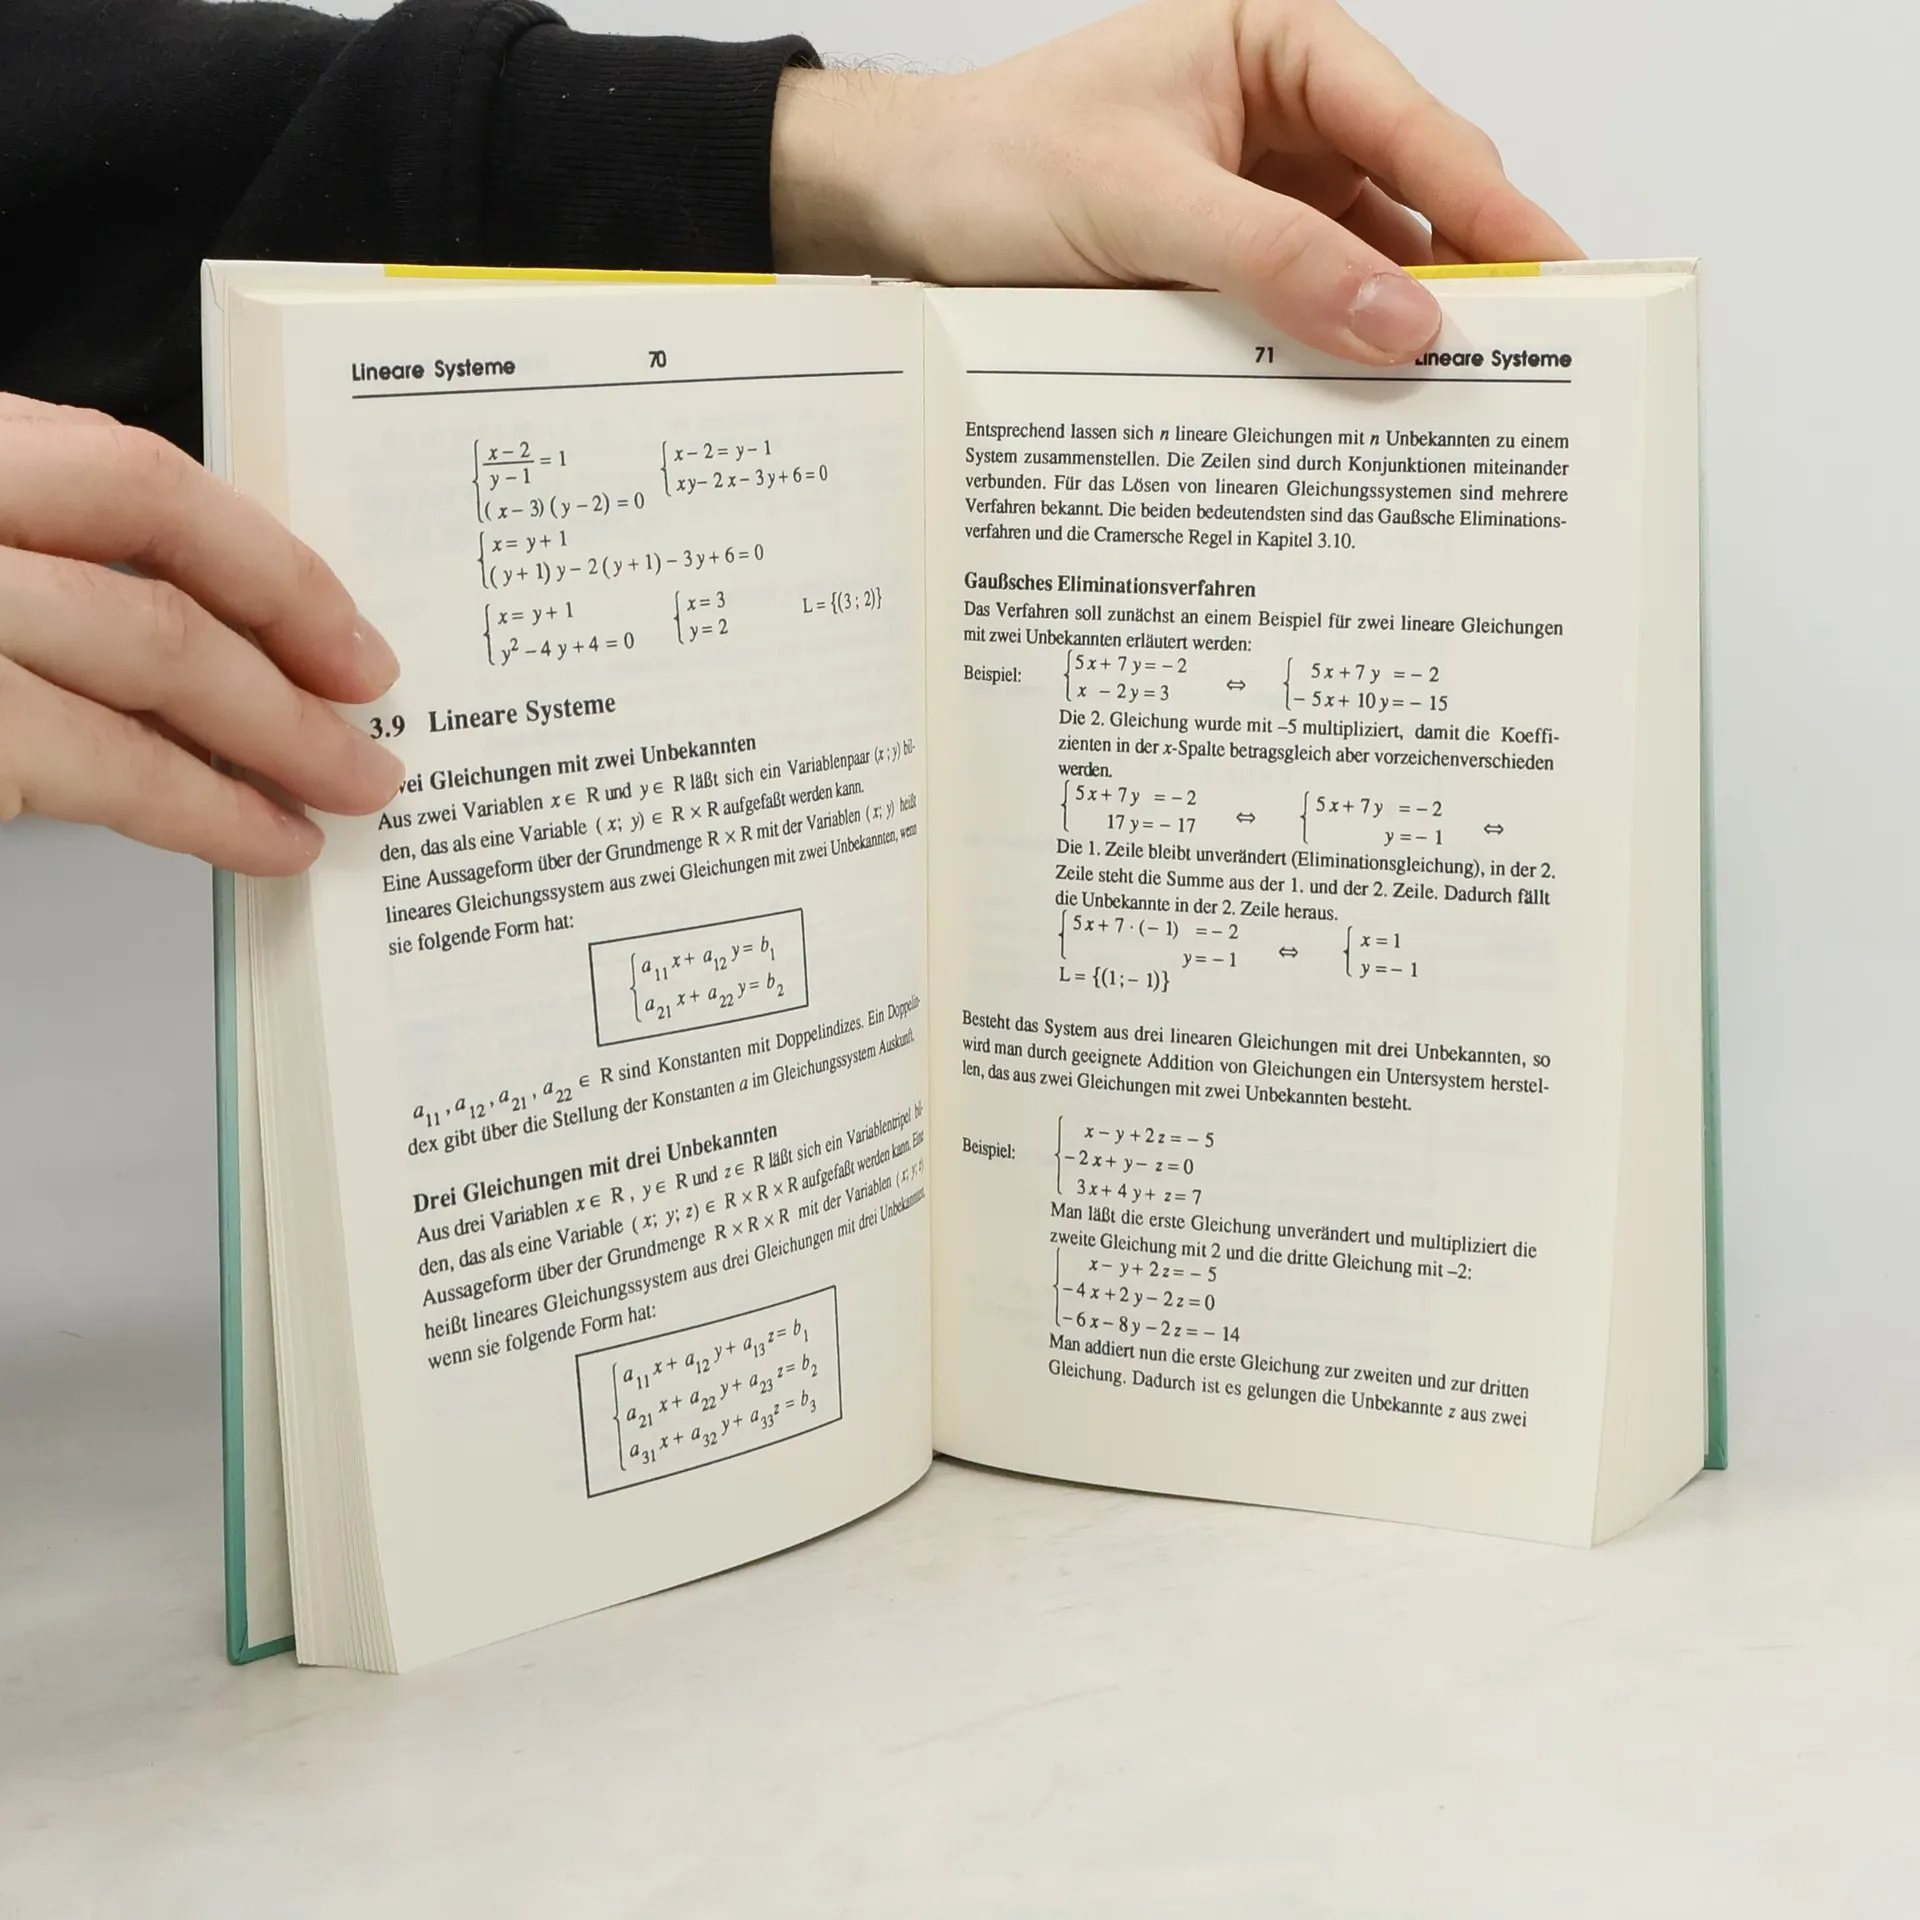 Lineare Systeme 70
x – 2 / y – 1 = 1
(x – 3)(y – 2) = 0
x – 2 = y – 1
xy – 2x – 3y + 6 = 0
x = y + 1
(y + 1)y – 2(y + 1) – 3y + 6 = 0
x = y + 1
y² – 4y + 4 = 0
x = 3
y = 2
L = {(3; 2)}
3.9 Lineare Systeme
Gleichungen mit zwei Unbekannten
Aus zwei Variablen x ∈ R und y ∈ R läßt sich ein Variablenpaar (x; y) bil-
den, das als eine Variable (x; y) ∈ R × R aufgefaßt werden kann.
Eine Aussageform über der Grundmenge R × R mit der Variablen (x; y) heißt
lineares Gleichungssystem aus zwei Gleichungen mit zwei Unbekannten, wenn
sie folgende Form hat:
a₁₁x + a₁₂y = b₁
a₂₁x + a₂₂y = b₂
a₁₁, a₁₂, a₂₁, a₂₂ ∈ R sind Konstanten mit Doppelindizes. Ein Doppelin-
dex gibt über die Stellung der Konstanten a im Gleichungssystem Auskunft.
Drei Gleichungen mit drei Unbekannten
Aus drei Variablen x ∈ R, y ∈ R und z ∈ R läßt sich ein Variablentripel bil-
den, das als eine Variable (x; y; z) ∈ R × R × R aufgefaßt werden kann. Eine
Aussageform über der Grundmenge R × R × R mit der Variablen (x; y; z)
heißt lineares Gleichungssystem aus drei Gleichungen mit drei Unbekannten,
wenn sie folgende Form hat:
a₁₁x + a₁₂y + a₁₃z = b₁
a₂₁x + a₂₂y + a₂₃z = b₂
a₃₁x + a₃₂y + a₃₃z = b₃
71 Lineare Systeme
Entsprechend lassen sich n lineare Gleichungen mit n Unbekannten zu einem
System zusammenstellen. Die Zeilen sind durch Konjunktionen miteinander
verbunden. Für das Lösen von linearen Gleichungssystemen sind mehrere
Verfahren bekannt. Die beiden bedeutendsten sind das Gaußsche Eliminations-
verfahren und die Cramersche Regel in Kapitel 3.10.
Gaußsches Eliminationsverfahren
Das Verfahren soll zunächst an einem Beispiel für zwei lineare Gleichungen
mit zwei Unbekannten erläutert werden:
Beispiel: 5x + 7y = – 2 ⇔ 5x + 7y = – 2
x – 2y = 3 – 5x + 10y = – 15
Die 2. Gleichung wurde mit –5 multipliziert, damit die Koeffi-
zienten in der x-Spalte betragsgleich aber vorzeichenverschieden
werden.
5x + 7y = – 2 ⇔ 5x + 7y = – 2 ⇔
17y = – 17 y = – 1
Die 1. Zeile bleibt unverändert (Eliminationsgleichung), in der 2.
Zeile steht die Summe aus der 1. und der 2. Zeile. Dadurch fällt
die Unbekannte in der 2. Zeile heraus.
5x + 7 · (– 1) = – 2 ⇔ x = 1
y = – 1 y = – 1
L = {(1; – 1)}
Besteht das System aus drei linearen Gleichungen mit drei Unbekannten, so
wird man durch geeignete Addition von Gleichungen ein Untersystem herstel-
len, das aus zwei Gleichungen mit zwei Unbekannten besteht.
Beispiel: x – y + 2z = – 5
– 2x + y – z = 0
3x + 4y + z = 7
Man läßt die erste Gleichung unverändert und multipliziert die
zweite Gleichung mit 2 und die dritte Gleichung mit –2:
x – y + 2z = – 5
– 4x + 2y – 2z = 0
– 6x – 8y – 2z = – 14
Man addiert nun die erste Gleichung zur zweiten und zur dritten
Gleichung. Dadurch ist es gelungen die Unbekannte z aus zwei